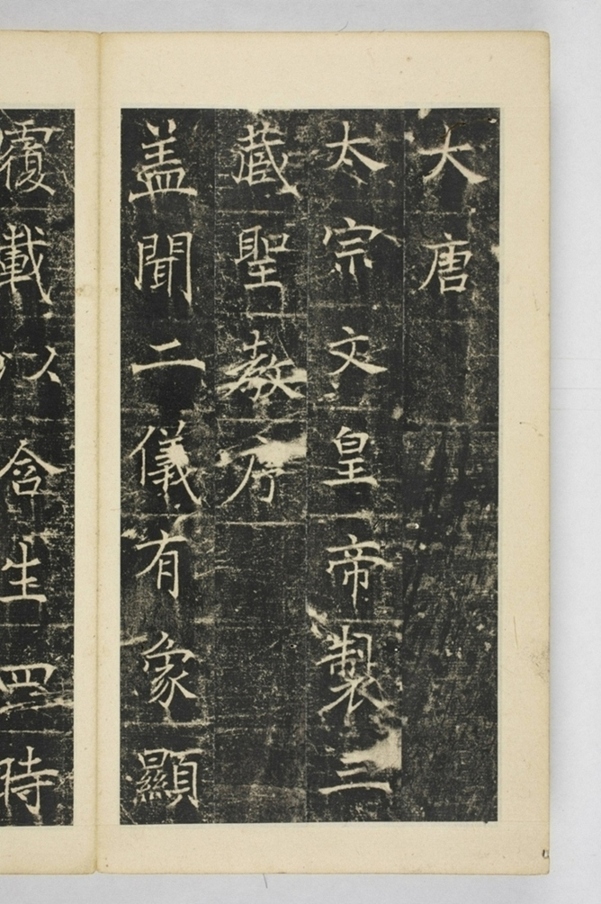 大唐
太宗文皇帝製三
蔵聖教序
盖聞二儀有象顯
覆載以含生四時